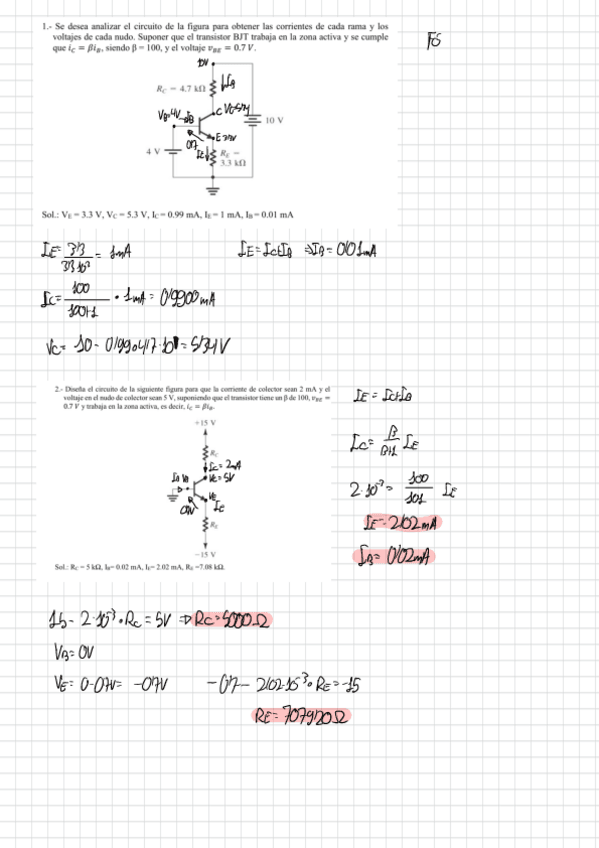 1.- Se desea analizar el circuito de la figura para obtener las corrientes de cada rama y los
voltajes de cada nudo. Suponer que el transistor BJT trabaja en la zona activa y se cumple
que iC = βiB, siendo β = 100, y el voltaje vBE = 0.7 V.
10V
RC = 4.7 kΩ
10 V
4 V
RE =
3.3 kΩ
Sol.: VE = 3.3 V, VC = 5.3 V, IC = 0.99 mA, IE = 1 mA, IB = 0.01 mA
IE = 3'3 / 3'3·10³ = 1mA
IE = IC+IB ⇒ IB = 0'01mA
IC = 100 / 100+1 · 1mA = 0'9900mA
VC = 10 - 0'990·4'7·10 = 5'34V
2.- Diseña el circuito de la siguiente figura para que la corriente de colector sean 2 mA y el
voltaje en el nudo de colector sean 5 V, suponiendo que el transistor tiene un β de 100, vBE =
0.7 V y trabaja en la zona activa, es decir, iC = βiB.
+15 V
RC
IC = 2mA
VC = 5V
VE
IE
RE
−15 V
Sol.: RC = 5 kΩ, IB= 0.02 mA, IE= 2.02 mA, RE =7.08 kΩ.
IE = IC+IB
IC = β / β+1 IE
2·10⁻³ = 100 / 101 IE
IE = 2'02mA
IB = 0'02mA
15 - 2·10⁻³·RC = 5V ⇒ RC = 5000Ω
VB = 0V
VE = 0-0'7V = -0'7V
-0'7 - 2'02·10⁻³·RE = -15
RE = 7079'20Ω